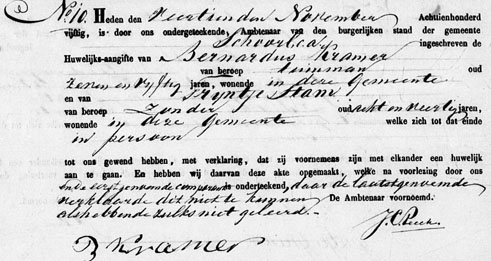 No. 10. Heden den Veertienden November Achttienhonderd
vijftig, is door ons ondergeteekende, Ambtenaar van den burgerlijken stand der gemeente
Schoorl ca ingeschreven de
Huwelijks-aangifte van Bernardus Kramer
van beroep tuinman oud
zeven en vijftig jaren, wonende in deze Gemeente
en van Trijntje Stam
van beroep Zonder oud acht en veertig jaren,
wonende in deze Gemeente welke zich tot dat einde
in persoon
tot ons gewend hebben, met verklaring, dat zij voornemens zijn met elkander een huwelijk
aan te gaan. En hebben wij daarvan deze akte opgemaakt, welke na voorlezing door ons
en de eerstgenoemde comparent is onderteekend, daar de laatstgenoemde
verklaarde dit niet te kunnen De Ambtenaar voornoemd.
als hebbende zulks niet geleerd.
B Kramer